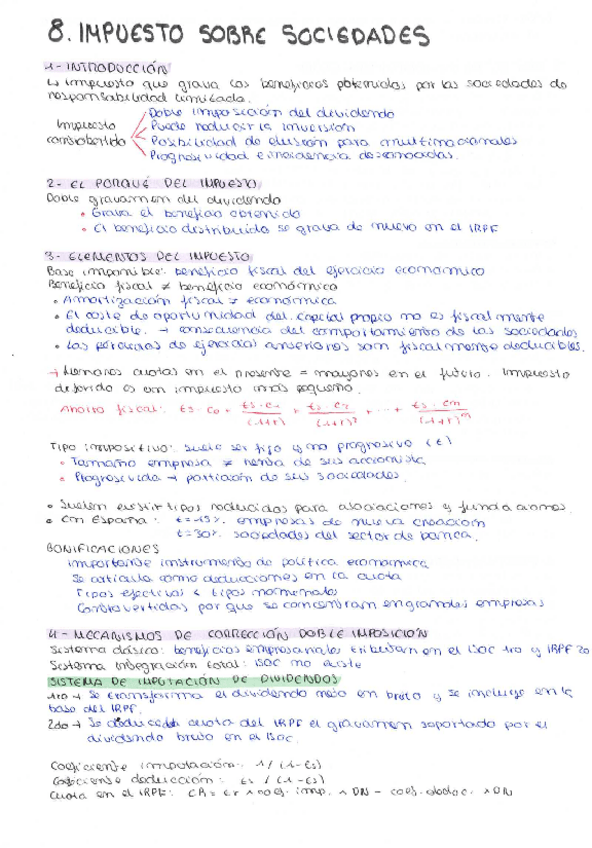 8. IMPUESTO SOBRE SOCIEDADES
1- INTRODUCCIÓN
↳ impuesto que grava los beneficios obtenidos por las sociedades de
responsabilidad limitada.
Doble imposición del dividendo
Impuesto Puede reducir la inversión
controvertido Posibilidad de elusión para multinacionales
Progresividad e incidencia desconocidas.
2- EL PORQUÉ DEL IMPUESTO
Doble gravamen del dividendo
• Grava el beneficio obtenido
• El beneficio distribuido se grava de nuevo en el IRPF
3- ELEMENTOS DEL IMPUESTO
Base imponible: beneficio fiscal del ejercicio económico
Beneficio fiscal ≠ beneficio económico
• Amortización fiscal ≠ económica
• El coste de oportunidad del capital propio no es fiscalmente
deducible. → consecuencia del comportamiento de las sociedades
• Las pérdidas de ejercicios anteriores son fiscalmente deducibles.
→ Menores cuotas en el presente = mayores en el futuro. Impuesto
diferido es un impuesto más pequeño.
Ahorro fiscal: ts·c0 + ts·c1/(1+r) + ts·c2/(1+r)² + ... + ts·cn/(1+r)ⁿ
Tipo impositivo: suele ser fijo y no progresivo (t)
• Tamaño empresa ≠ renta de sus accionista
• Progresividad → partición de sus sociedades.
• Suelen existir tipos reducidos para asociaciones y fundaciones.
• En España: t=15%. empresas de nueva creación
t=30%. sociedades del sector de banca.
BONIFICACIONES
importante instrumento de política económica
Se articula como deducciones en la cuota
Tipos efectivos < tipos nominales
Controvertidas por que se concentran en grandes empresas
4- MECANISMOS DE CORRECCIÓN DOBLE IMPOSICIÓN
Sistema clásico: beneficios empresariales tributan en el ISOC 1ro y IRPF 2o
Sistema integración total: ISOC no existe
SISTEMA DE IMPUTACIÓN DE DIVIDENDOS
1ro → Se transforma el dividendo neto en bruto y se incluye en la
base del IRPF.
2do → Se deduce cuota del IRPF el gravamen soportado por el
dividendo bruto en el ISOC.
Coeficiente imputación: 1/(1-ts)
Coeficiente deducción: ts/(1-ts)
Cuota en el IRPF: CR= tr x coef. imp. x DN - coef. deduc. x DN